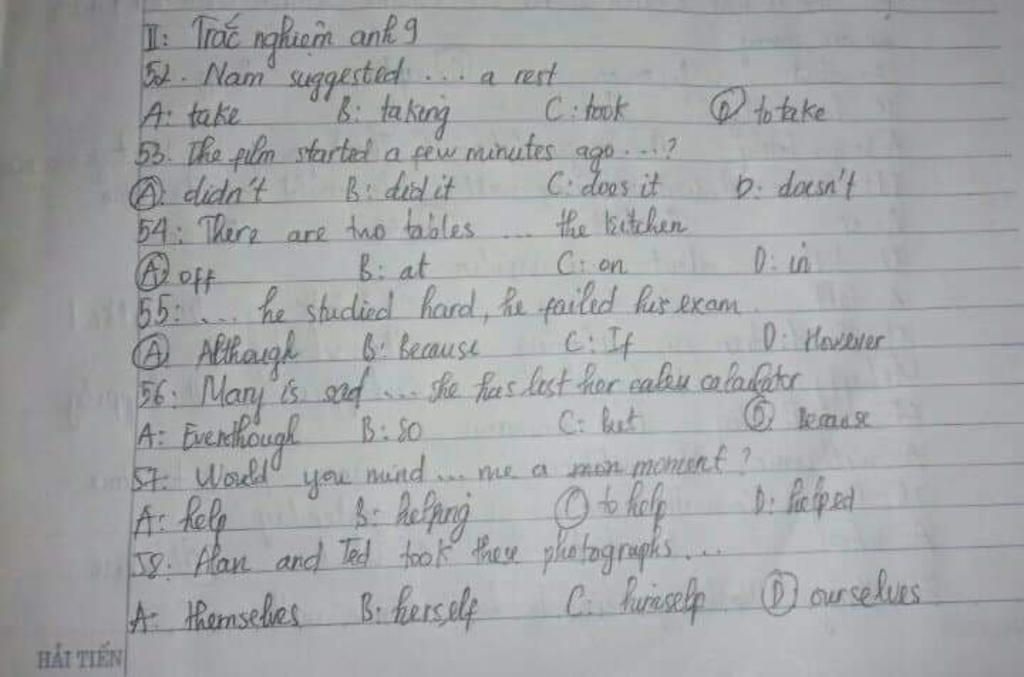 II: Trắc nghiệm anh 9
52. Nam suggested ... a rest
A: take B: taking C: took D to take
53. The film started a few minutes ago ...?
A didn't B: did it C: does it D: doesn't
54: There are two tables ... the kitchen
A off B: at C: on D: in
55: ... he studied hard, he failed his exam.
A Although B: Because C: If D: However
56: Mary is sad ... she has lost her calculator
A: Eventhough B: so C: but D because
57: Would you mind ... me a moment?
A: help B: helping C to help D: helped
58: Alan and Ted took these photographs ...
A: themselves B: herself C: himself D ourselves
HẢI TIẾN